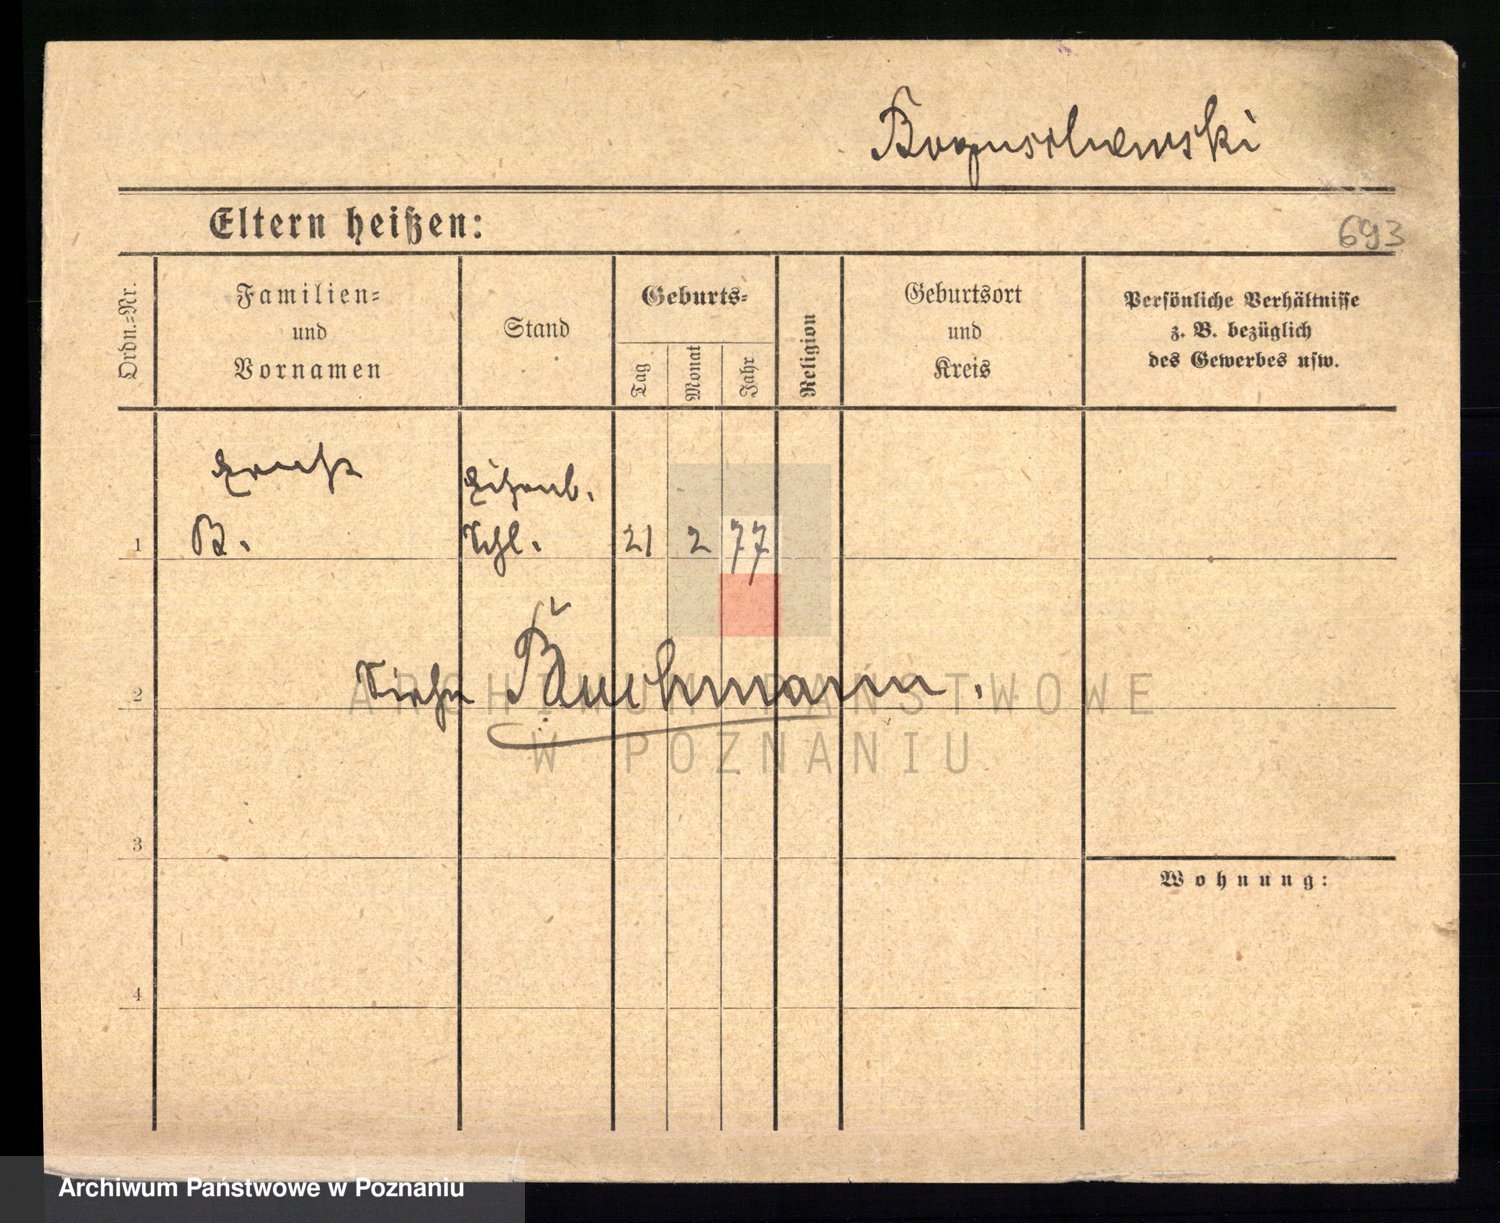 Boguschewski
Eltern heißen:
693
Ordn.=Nr.
Familien=
und
Vornamen
Stand
Geburts=
Tag
Monat
Jahr
Religion
Geburtsort
und
Kreis
Persönliche Verhältnisse
z. B. bezüglich
des Gewerbes usw.
Ernst
Eisenb.
1
B.
21
2
77
Siehe
2
ARCHIWUM PAŃSTWOWE
W POZNANIU
3
Wohnung:
4
Archiwum Państwowe w Poznaniu